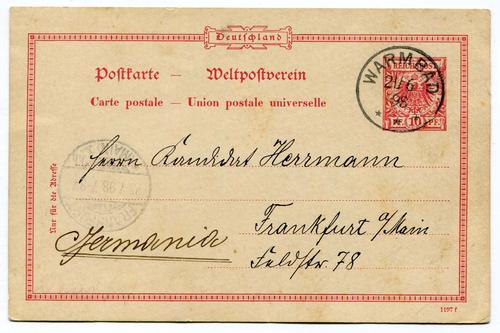 Deutschland
Postkarte — Weltpostverein
Carte postale — Union postale universelle
WARMBAD
21/6
98
REICHSPOST
PF. (10) PF.
Nur für die Adresse
Herrn Kandidat Herrmann
Frankfurt a/Main
Germania
Feldstr. 78
1197 f